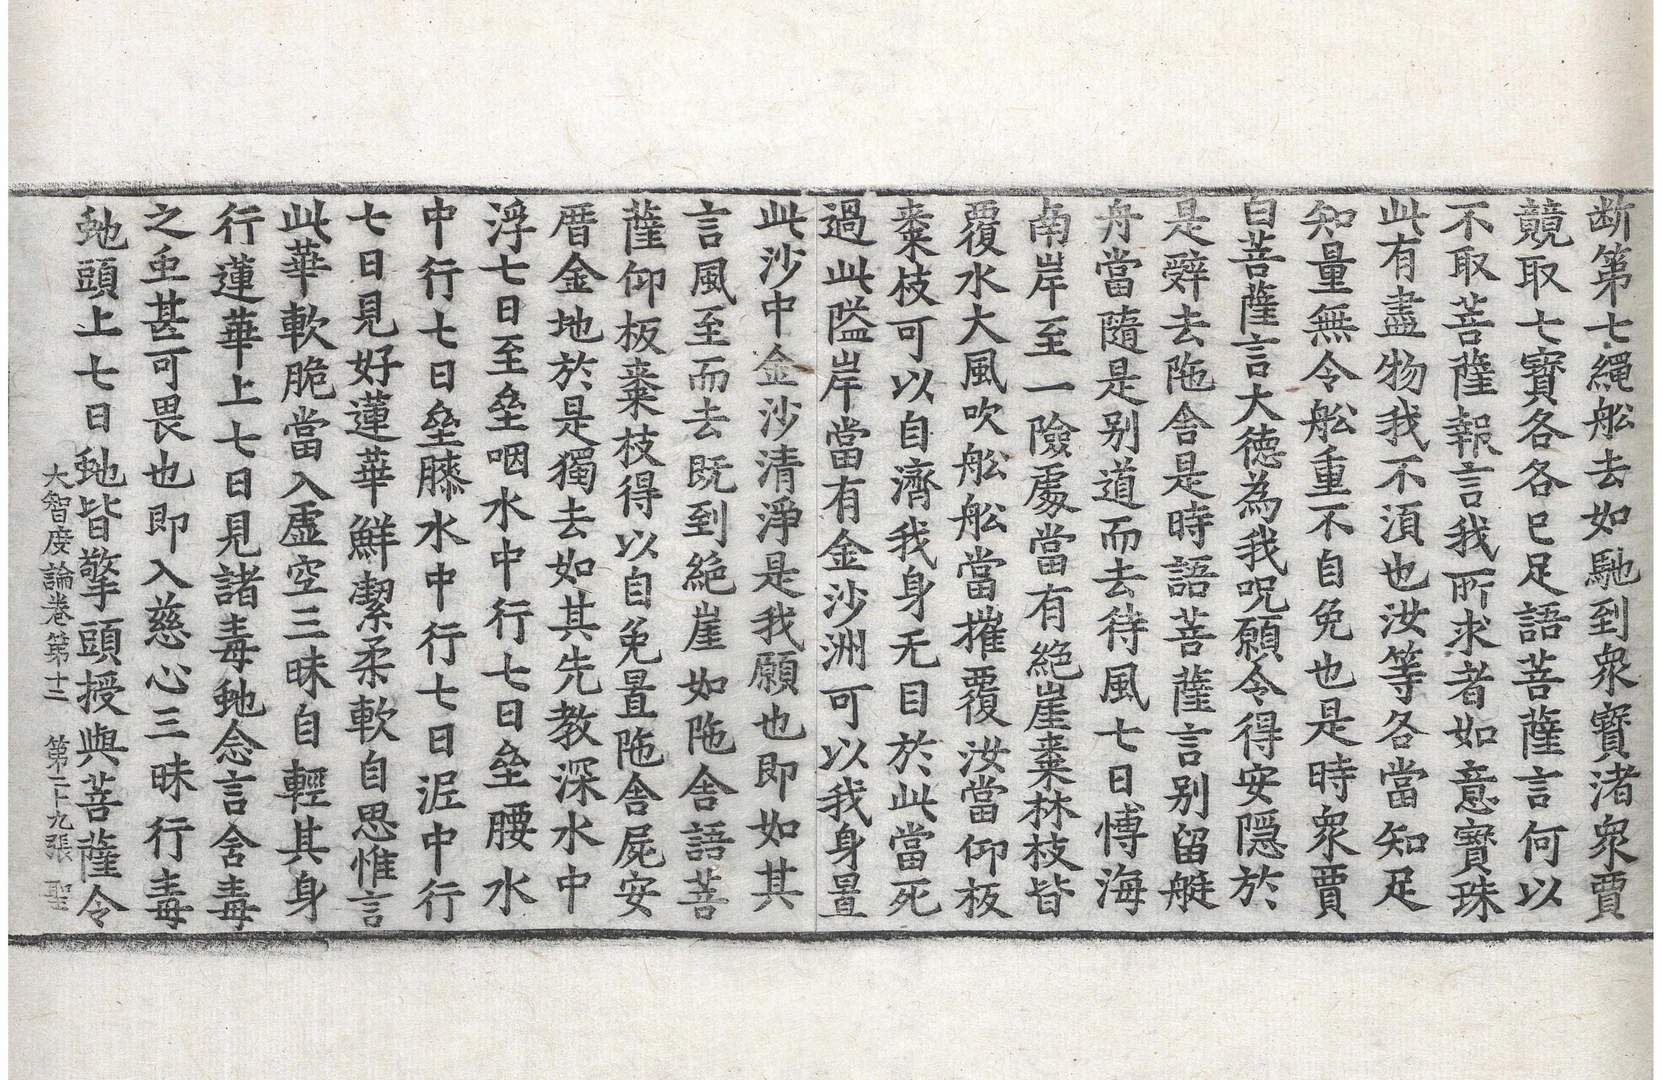 断第七繩舩去如馳到衆寶渚衆賈
競取七寶各各已足語菩薩言何以
不取菩薩報言我所求者如意寶珠
此有盡物我不湏也汝等各當知足
知量無令舩重不自免也是時衆賈
白菩薩言大德為我呪願令得安隱於
是辝去陁舍是時語菩薩言別留艇
舟當隨是別道而去待風七日愽海
南岸至一險處當有絶崖棗林枝皆
覆水大風吹舩舩當摧覆汝當仰板
棗枝可以自濟我身无目於此當死
過此隘岸當有金沙洲可以我身置
此沙中金沙清淨是我願也即如其
言風至而去既到絶崖如陁舍語菩
薩仰板棗枝得以自免置陁舍屍安
厝金地於是獨去如其先教深水中
浮七日至垒咽水中行七日垒腰水
中行七日垒膝水中行七日泥中行
七日見好蓮華鮮潔柔軟自思惟言
此華軟脆當入虛空三昧自輕其身
行蓮華上七日見諸毒虵念言含毒
之虫甚可畏也即入慈心三昧行毒
虵頭上七日虵皆擎頭授與菩薩令
大智度論卷第十二 第二十九張 聖